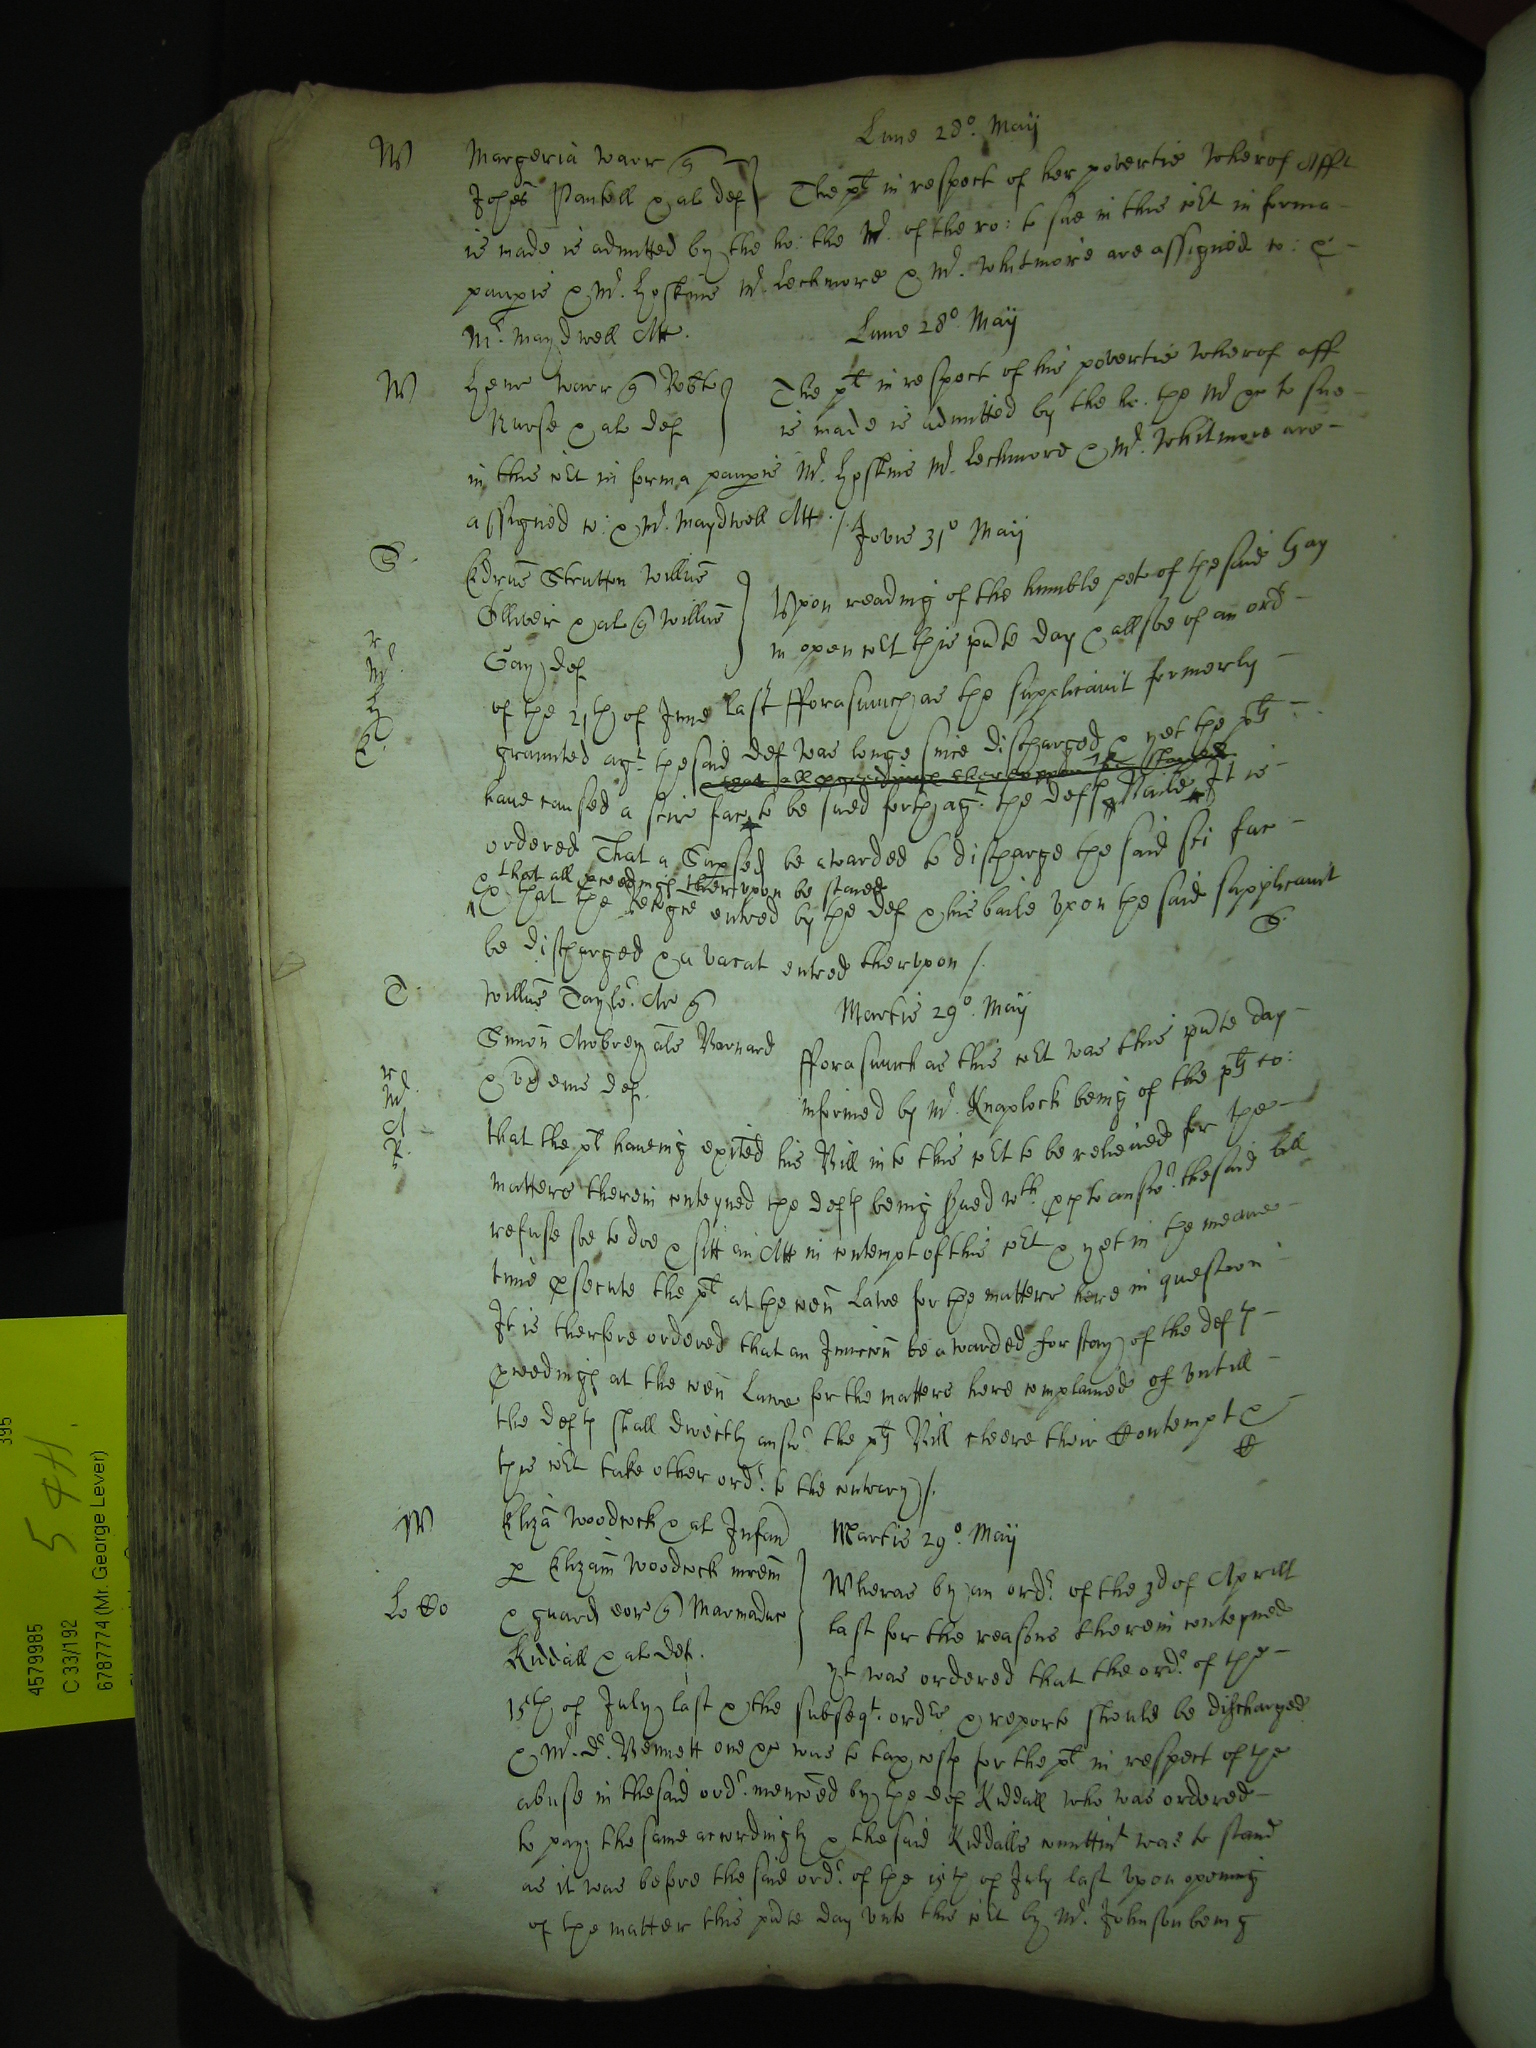 Lune 28o. Maij
W Margeria Warr
Johes Pantell & al def The plt in respect of her povertie wherof Afft
is made is admitted by the ho: the Mr. of the ro: to sue in this cot in forma
paupis & Mr. Hoskins Mr. Leckmore & Mr. Whitmore are assigned co: &
Mr. Maydwell Att.
Lune 28o. Maij
W Henr Warr Robto
Nurse & al def
The plt in respect of his povertie wherof aff
is made is admitted by the ho. the Mr &c to sue
in this cot in forma paupis Mr. Hoskins Mr. Leckmore & Mr. Whitmore are
assigned co: & Mr. Maydwell Att ./.
Jovis 31o Maij
S. Edrus Strutton Willus
Olliver & al Willus
Gay def
Upon reading of the humble peto of the said Gay
in open cot this pnte day & allsoe of an ord
of the 21th of June last fforasmuch as the supplicavit formerly
graunted agt. the said def was longe since discharged & yet the plts
have caused a scire fac to be sued forth agt. the defts Baile It is
ordered That a Supsed be awarded to discharge the said sci fac
& that all pceedings therupon be staied
& that the recogce entred by the def & his baile upon the said supplicavit
be discharged & a vacat entred therupon /.
S.
T. Willus Taylor. Ar
Simon Awbrey als Barnard
& def.
Martis 29o. Maij
fforasmuch as this cot was this pnte day
informed by Mr. Knaplock being of the plts co:
that the plt haveing exited his Bill into this cot to be releived for the
matters therein conteyned the defts being sued wth. pces to answr. the said bill
refuse soe to doe & sitt an Att in contempt of this cot & yet in the meane
time psecute the plt at the coen Lawe for the matters here in question
It is therfore ordered that an Iniuccon be awarded for stay of the defts
pceedings at the coen Lawe for the matters here complained of untill
the defts shall directly answr the plts Bill cleere their Contempt &
this cot take other ordr. to the contrary /.
W Eliza Woodcock & al Infan
p Elizam Woodcock mrem
& guard eor Marmaduc
Kiddall & al def.
Martis 29o. Maij
Wheras by an ordr. of the 3d of Aprill
last for the reasons therein conteyned
yt was ordered that the ordr. of the
15th of July last & the subseqt. ordrs & reports should be discharged
& Mr. Dr. Bennett one &c was to tax costs for the plt in respect of the
abuse in the said ordr. menconed by the def Kiddall who was ordered
to pay the same accordingly & the said Kiddalls comittmt was to stand
as it was before the said ordr. of the 15th of July last Upon opening
of the matter this pnte day unto this cot by Mr. Johnson being
4579985
C 33/192
6787774 (Mr. George Lever)